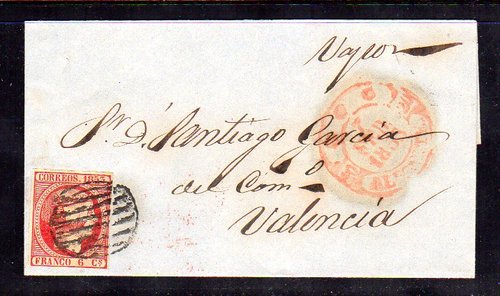 Vapor
Sr. D. Santiago García
del Comº
Valencia
CORREOS. 1853
FRANCO 6 Cs